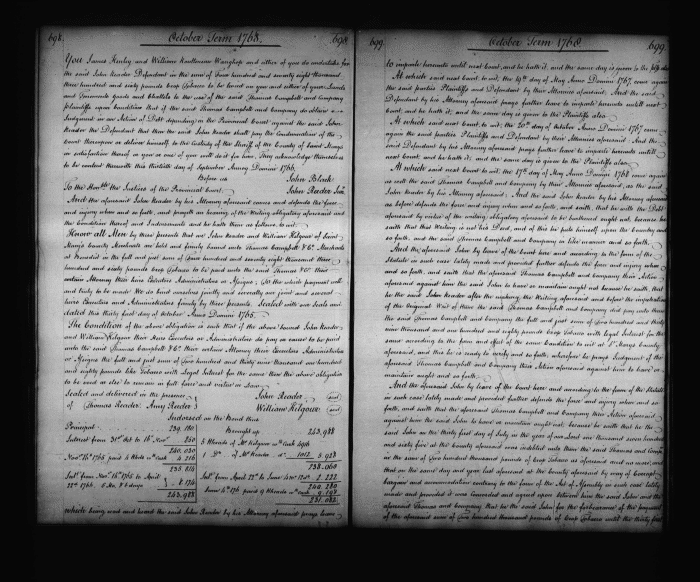 698. October Term 1768. 698
You James Henly and William Hanllemsee Wanghop and either of you do undertake for
the said John Reader Defendant in the sum of Four hundred and seventy eight thousand
three hundred and sixty pounds Crop Tobacco to be levied on your and either of your Lands
and Tenements goods and Chattels to the use of the said Thomas Campbell and Company
plaintiffs upon Condition that if the said Thomas Campbell and Company do obtain
Judgment in an Action of Debt depending in the Provincial Court against the said John
Reader the Defendant that then the said John Reader shall pay the Condemnation of the
Court thereupon or deliver himself to the Custody of the Sheriff of the County of Saint Marys
in satisfaction thereof or you or one of you will do it for him. They acknowledge themselves
to be content herewith this thirtieth day of September Anno Domini 1766.
Before John Black
To the Hon.ble the Justices of the Provincial Court. John Reeder Jun.
And the aforesaid John Reader by his Attorney aforesaid comes and defends the force
and injury when and so forth, and prayeth an hearing of the Writing obligatory aforesaid and
the Condition thereof and Indorsements and he hath them as follows to wit.
Know all Men by these presents that we John Reader and William Kilgour of Saint
Mary's County Merchants are held and firmly bound unto Thomas Campbell & Co. Merchants
at in the full and just sum of Four hundred and seventy eight thousand three
hundred and sixty pounds Crop Tobacco to be paid unto the said Thomas & Co. their
certain Attorney their heirs Executors Administrators or Assigns, To the which payment well
and truly to be made We do bind ourselves jointly and severally our joint and several
heirs Executors and Administrators firmly by these presents. Sealed with our Seals and
dated this thirty first day of October Anno Domini 1765.
The Condition of the above obligation is such that if the above bound John Reader
and William Kilgour their Heirs Executors or Administrators do pay or cause to be paid
unto the said Thomas Campbell & Co. their certain Attorney their Executors Administrators
or Assigns the full and just sum of Two hundred and thirty nine thousand one hundred
and eighty pounds like Tobacco with Legal Interest for the same then the above Obligation
to be void or else to remain in full force and virtue in Law.
Sealed and delivered in the presence John Reader (seal)
of Thomas Reeder. Amy Reeder William Kilgour (seal)
Indorsed on the Bond thus
Principal 239,180 Brought up 243,988
Interest from 31st Oct. to 16th Nov. 850 5 Hhends of Mr. Kilgour
240,030 1 Do. of Mr. Reader 1012 5,928
Novr. 16th 1765 paid 6,216 238,060
233,814 Intt. from April 22d to 2,222
Intt. from Nov. 16th 1765 to April 8,174 240,282
22d 1766. 5 Mo. & 6 days 9 Hhends 9,198
243,988 231,084
which being read and heard the said John Reader by his Attorney aforesaid prays leave
699. October Term 1768 699
to imparle hereunto until next Court, and he hath it, and the same day is given to the
At which said next Court to wit, the 19th day of May Anno Domini 1767 come again
the said parties Plaintiffs and Defendant by their Attornies aforesaid. And the said
Defendant by his Attorney aforesaid prays further leave to imparle hereunto until next
Court, and he hath it; and the same day is given to the Plaintiffs also.
At which said next Court to wit, the 20th day of October Anno Domini 1767 come
again the said parties Plaintiffs and Defendant by their Attornies aforesaid. And the said
Defendant by his Attorney aforesaid prays further leave to imparle hereunto until
next Court; and he hath it; and the same day is given to the Plaintiffs also.
At which said next Court to wit, the 17th day of May Anno Domini 1768 comes again
as well the said Thomas Campbell and Company by their Attornies aforesaid, as the said
John Reader by his Attorney aforesaid. And the said John Reader by his Attorney aforesaid
as before defends the force and injury when and so forth, and saith, that he with the Debt
aforesaid by virtue of the writing obligatory aforesaid to be charged ought not, because he
saith that this Writing is not his Deed, and of this he puts himself upon the Country and
so forth, and the said Thomas Campbell and Company in like manner and so forth.
And the aforesaid John by leave of the Court here and according to the form of the
Statute in such case lately made and provided further defends the force and injury when
and so forth, and saith that the aforesaid Thomas Campbell and Company their Action
aforesaid against him the said John to have or maintain ought not because he saith, that
he the said John Reader after the making the Writing aforesaid and before the impetration
of the Original Writ of them the said Thomas Campbell and Company did pay unto them
the said Thomas Campbell and Company the full and just sum of Two hundred and thirty
nine thousand and one hundred and eighty pounds Crop Tobacco with Legal Interest for the
same according to the form and effect of the same Condition to wit at St. Mary's County
aforesaid, and this he is ready to verify and so forth, wherefore he prays Judgment if the
aforesaid Thomas Campbell and Company their Action aforesaid against him to have or
maintain ought and so forth.
And the aforesaid John by leave of the Court here and according to the form of the Statute
in such case lately made and provided further defends the force and injury when and so
forth, and saith that the aforesaid Thomas Campbell and Company their Action aforesaid
against him the said John to have or maintain ought not; because he saith that he the
said John on the thirty first day of July in the year of our Lord one thousand seven hundred
and sixty five at the County aforesaid was indebted unto them the said Thomas and Company
in the sum of Two hundred thousand pounds of Crop Tobacco as aforesaid and no more, and
that on the same day and year last aforesaid at the County aforesaid by way of Corrupt
bargain and accommodation contrary to the form of the Act of Assembly in such case lately
made and provided it was Covenanted and agreed upon between him the said John and the
aforesaid Thomas and Company that he the said John for the forbearance of the payment
of the aforesaid sum of Two hundred thousand pounds of Crop Tobacco until the thirty first